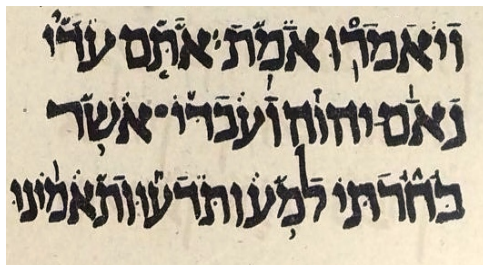 ויאמרו אמת אתם עדי
נאם יהוה ועבדי אשר
בחרתי למען תדעו ותאמינו